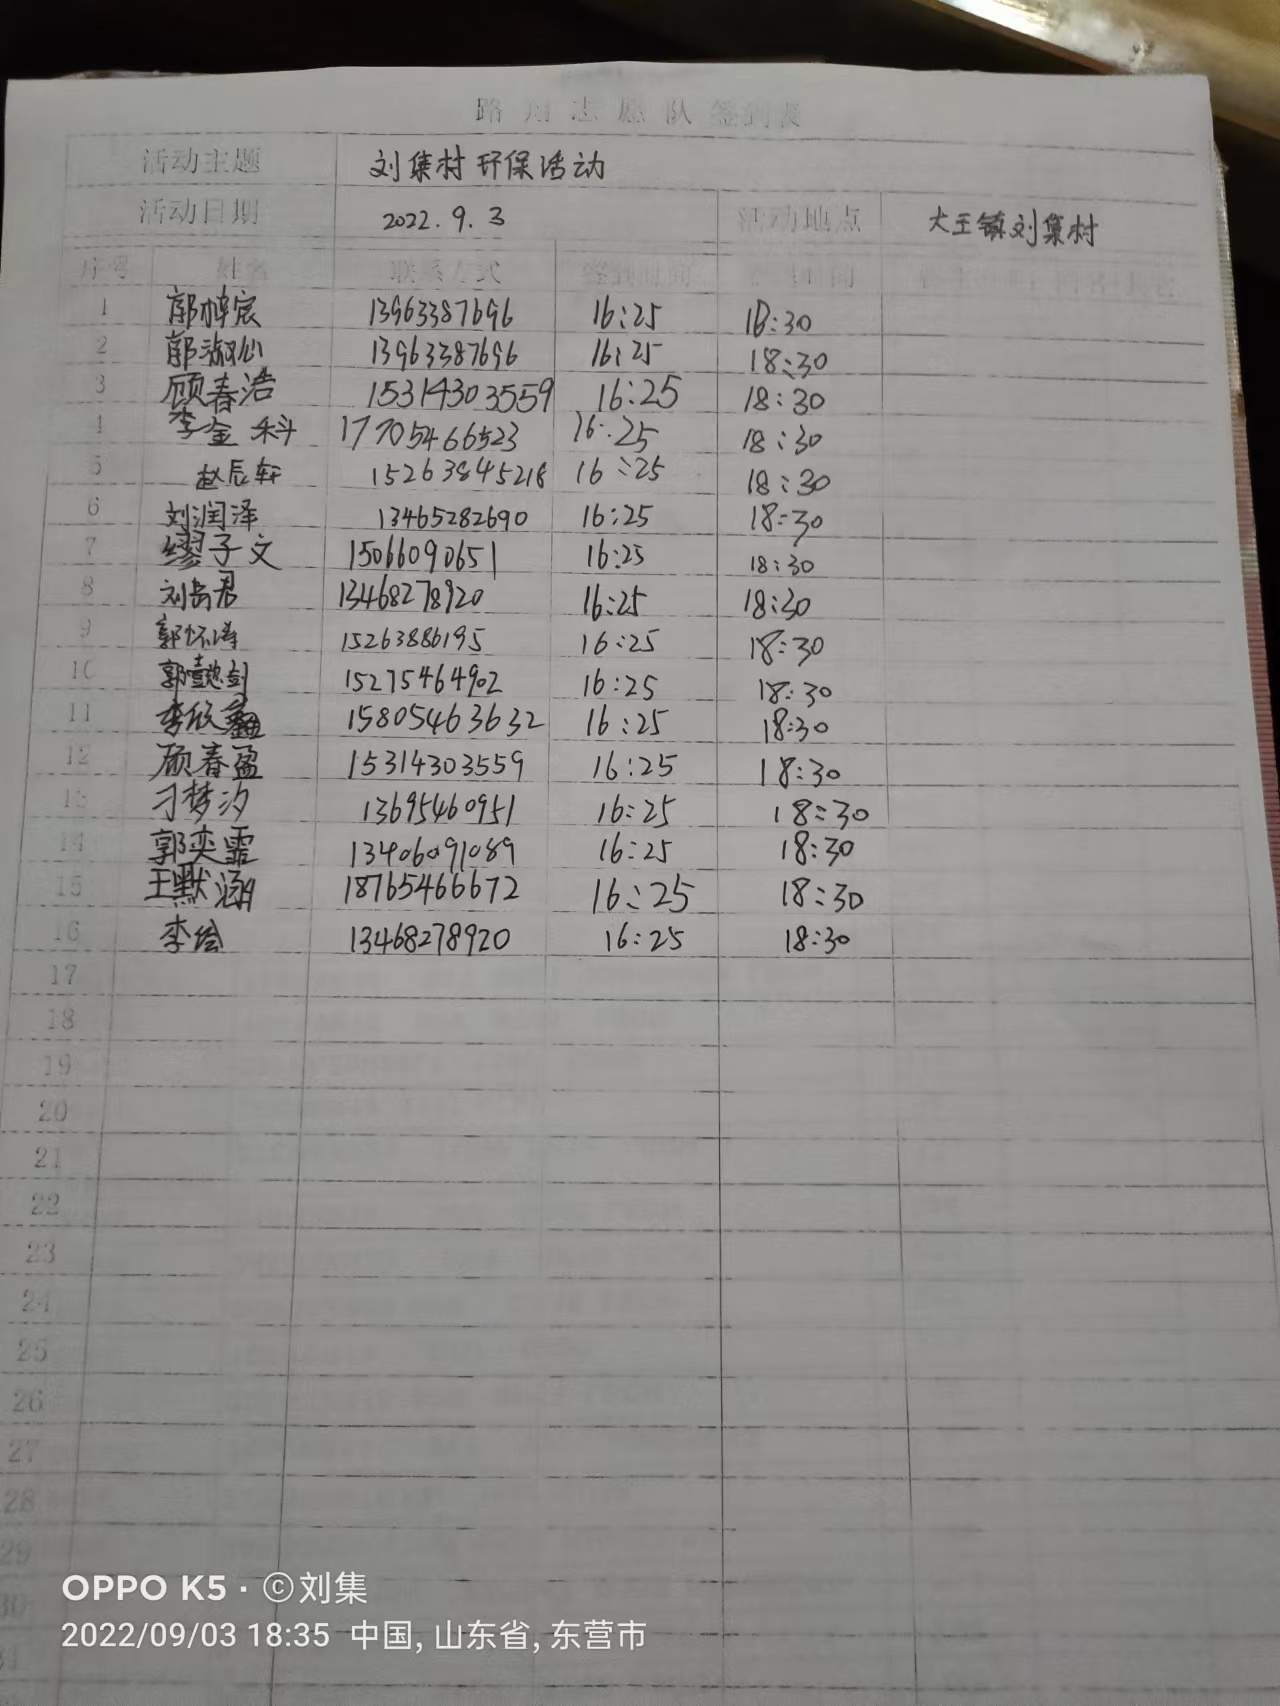 路翔志愿队签到表
活动主题 刘集村环保活动
活动日期 2022.9.3 活动地点 大王镇刘集村
序号 姓名 联系方式 签到时间
1 郭梓宸 13963387696 16:25 18:30
2 郭淑仙 13963387696 16:25 18:30
3 顾春浩 15314303559 16:25 18:30
4 李金科 17705466523 16:25 18:30
5 赵辰轩 15263845218 16:25 18:30
6 刘润泽 13465282690 16:25 18:30
7 缪子文 15066090651 16:25 18:30
8 刘岳君 13468278920 16:25 18:30
9 郭怀涛 15263886195 16:25 18:30
10 郭懿剑 15275464902 16:25 18:30
11 李欣 15805463632 16:25 18:30
12 顾春盈 15314303559 16:25 18:30
13 刁梦汐 13695460951 16:25 18:30
14 郭奕霏 13406091089 16:25 18:30
15 王默涵 18765466672 16:25 18:30
16 李绘 13468278920 16:25 18:30
17
18
19
20
21
22
23
24
25
26
27
28
29
30
31
OPPO K5 · ©刘集
2022/09/03 18:35 中国, 山东省, 东营市